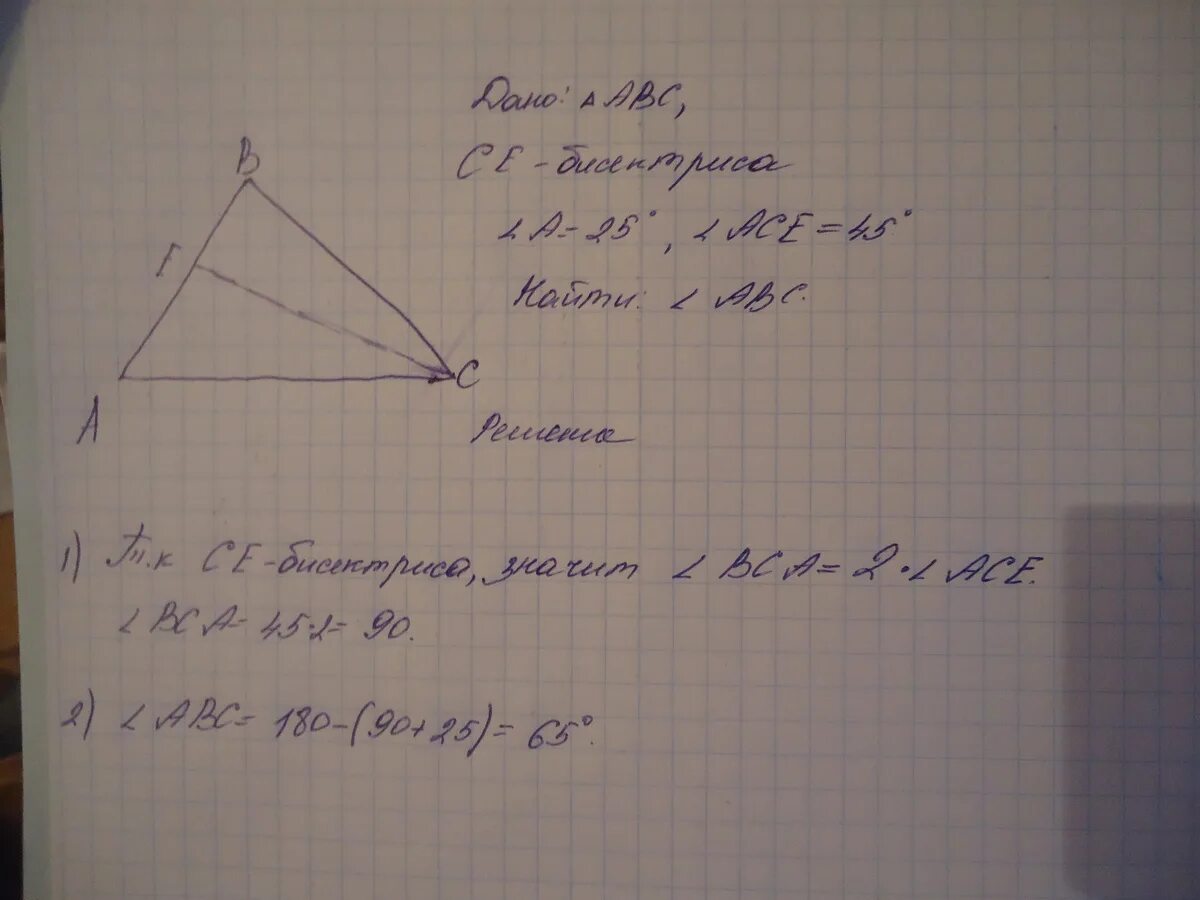 Дано: ▵ ABC,
CE - бисектриса
∠A = 25°, ∠ACE = 45°
Найти: ∠ ABC.
B
E
A
C
Решение
1) Т.к CE - бисектриса, значит ∠ BCA = 2 · ∠ ACE.
∠BCA = 45·2 = 90.
2) ∠ABC = 180-(90+25) = 65°.